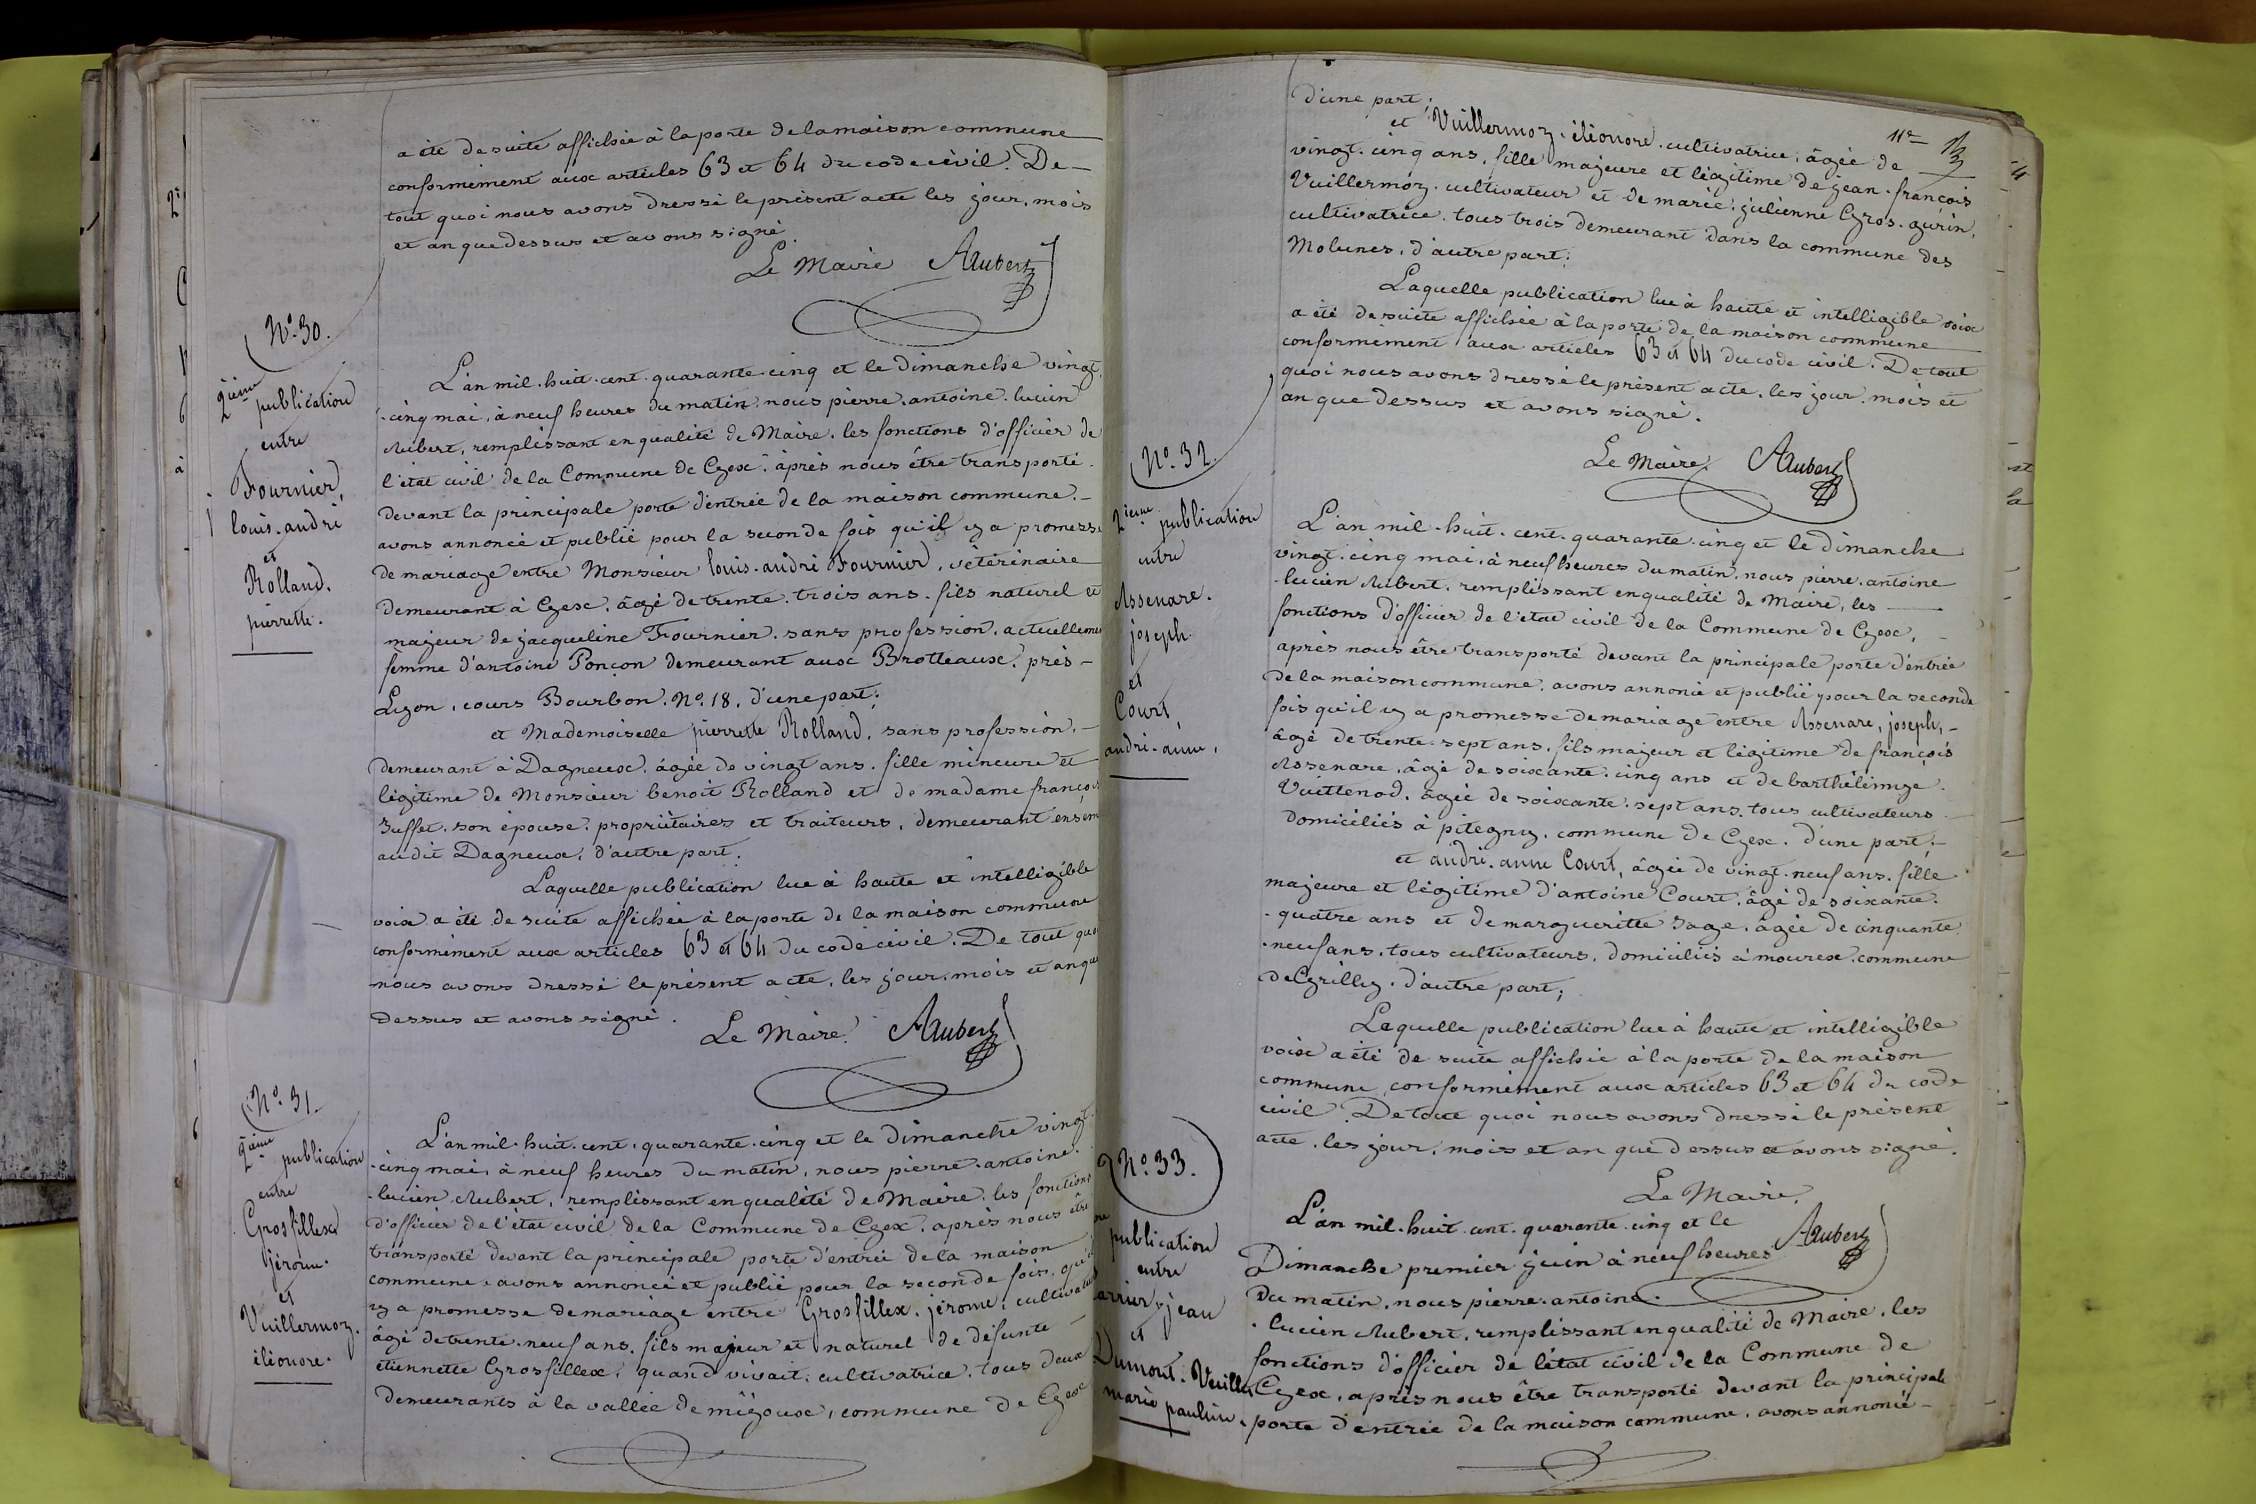 a été de suite affichée à la porte de la maison commune
conformément aux articles 63 et 64 du code civil. De
tout quoi nous avons dressé le présent acte les jour, mois
et an que dessus et avons signé.
Le Maire Aubert
N° 30.
2ième publication
entre
Fournier,
louis-andré
et
Rolland.
pierrette.
L'an mil-huit-cent-quarante-cinq et le dimanche vingt-
-cinq mai, à neuf heures du matin, nous pierre-antoine-lucien
Aubert, remplissant en qualité de Maire, les fonctions d'officier de
l'état civil de la Commune de Gex, après nous être transporté
devant la principale porte d'entrée de la maison commune,
avons annoncé et publié pour la seconde fois qu'il y a promesse
de mariage entre Monsieur louis-andré Fournier, vétérinaire
demeurant à Gex, âgé de trente-trois ans, fils naturel et
majeur de jacqueline Fournier, sans profession, actuellement
femme d'antoine Ponçon demeurant aux Brotteaux, près
Lyon, cours Bourbon, N° 18, d'une part;
et Mademoiselle pierrette Rolland, sans profession,
demeurant à Dagneux, âgée de vingt ans, fille mineure et
légitime de Monsieur benoit Rolland et de madame françoise
Suffet, son épouse, propriétaires et traiteurs, demeurant ensem
au dit Dagneux, d'autre part;
Laquelle publication lue à haute et intelligible
voix a été de suite affichée à la porte de la maison commune
conformément aux articles 63 et 64 du code civil. De tout quoi
nous avons dressé le présent acte, les jour, mois et an que
dessus et avons signé.
Le Maire Aubert
N° 31.
2ième publication
entre
Grosfillex
jérome.
et
Vuillermoz.
éléonore.
L'an mil-huit-cent-quarante-cinq et le dimanche vingt-
-cinq mai, à neuf heures du matin, nous pierre-antoine-
-lucien Aubert, remplissant en qualité de Maire, les fonctions
d'officier de l'état civil de la Commune de Gex, après nous être
transporté devant la principale porte d'entrée de la maison
commune, avons annoncé et publié pour la seconde fois, qu'il
y a promesse de mariage entre Grosfillex, jérome, cultivateur
âgé de trente-neuf ans, fils majeur et naturel de défunte
étiennette Grosfillex, quand vivait, cultivatrice, tous deux
demeurants à la vallée de mijoux, commune de Gex
d'une part;
11e
et Vuillermoz-éléonore, cultivatrice, âgée de
vingt-cinq ans, fille majeure et légitime de jean-françois
Vuillermoz, cultivateur et de marie-julienne Gros-gurin,
cultivatrice, tous trois demeurant dans la commune des
Molunes, d'autre part;
Laquelle publication lue à haute et intelligible voix
a été de suite affichée à la porte de la maison commune
conformément aux articles 63 et 64 du code civil. De tout
quoi nous avons dressé le présent acte, les jour, mois et
an que dessus et avons signé.
Le Maire. Aubert
N° 32.
2ième publication
entre
Assenare.
joseph.
et
Court,
andré-anne,
L'an mil-huit-cent-quarante-cinq et le dimanche
vingt-cinq mai, à neuf heures du matin, nous pierre-antoine
-lucien Aubert, remplissant en qualité de Maire, les
fonctions d'officier de l'état civil de la Commune de Gex,
après nous être transporté devant la principale porte d'entrée
de la maison commune, avons annoncé et publié pour la seconde
fois qu'il y a promesse de mariage entre Assenare, joseph,
âgé de trente-sept ans, fils majeur et légitime de françois
Assenare, âgé de soixante-cinq ans et de barthélémye
Vuittenod, âgée de soixante-sept ans, tous cultivateurs
domiciliés à pitegny, commune de Gex, d'une part;
et andré-anne Court, âgée de vingt-neuf ans, fille
majeure et légitime d'antoine Court, âgé de soixante-
-quatre ans et de margueritte Sage, âgée de cinquante
-neuf ans, tous cultivateurs, domiciliés à mourex, commune
de Grilly, d'autre part;
Laquelle publication lue à haute et intelligible
voix a été de suite affichée à la porte de la maison
commune, conformément aux articles 63 et 64 du code
civil. De tout quoi nous avons dressé le présent
acte, les jour, mois et an que dessus et avons signé.
Le Maire.
Aubert
N° 33.
publication
entre
arrier, jean
et
Dumont-Vuillet
marie pauline.
L'an mil-huit-cent-quarante-cinq et le
Dimanche premier juin à neuf heures
du matin, nous pierre-antoine-
-lucien Aubert, remplissant en qualité de Maire, les
fonctions d'officier de l'état civil de la Commune de
Gex, après nous être transporté devant la principale
porte d'entrée de la maison commune, avons annoncé